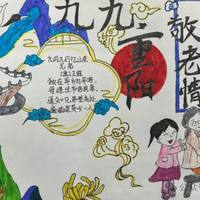 九九
重阳
敬老情
九月九日忆山东
兄弟
(唐)王维
独在异乡为异客，
每逢佳节倍思亲。
遥知兄弟登高处，
遍插茱萸少一人。